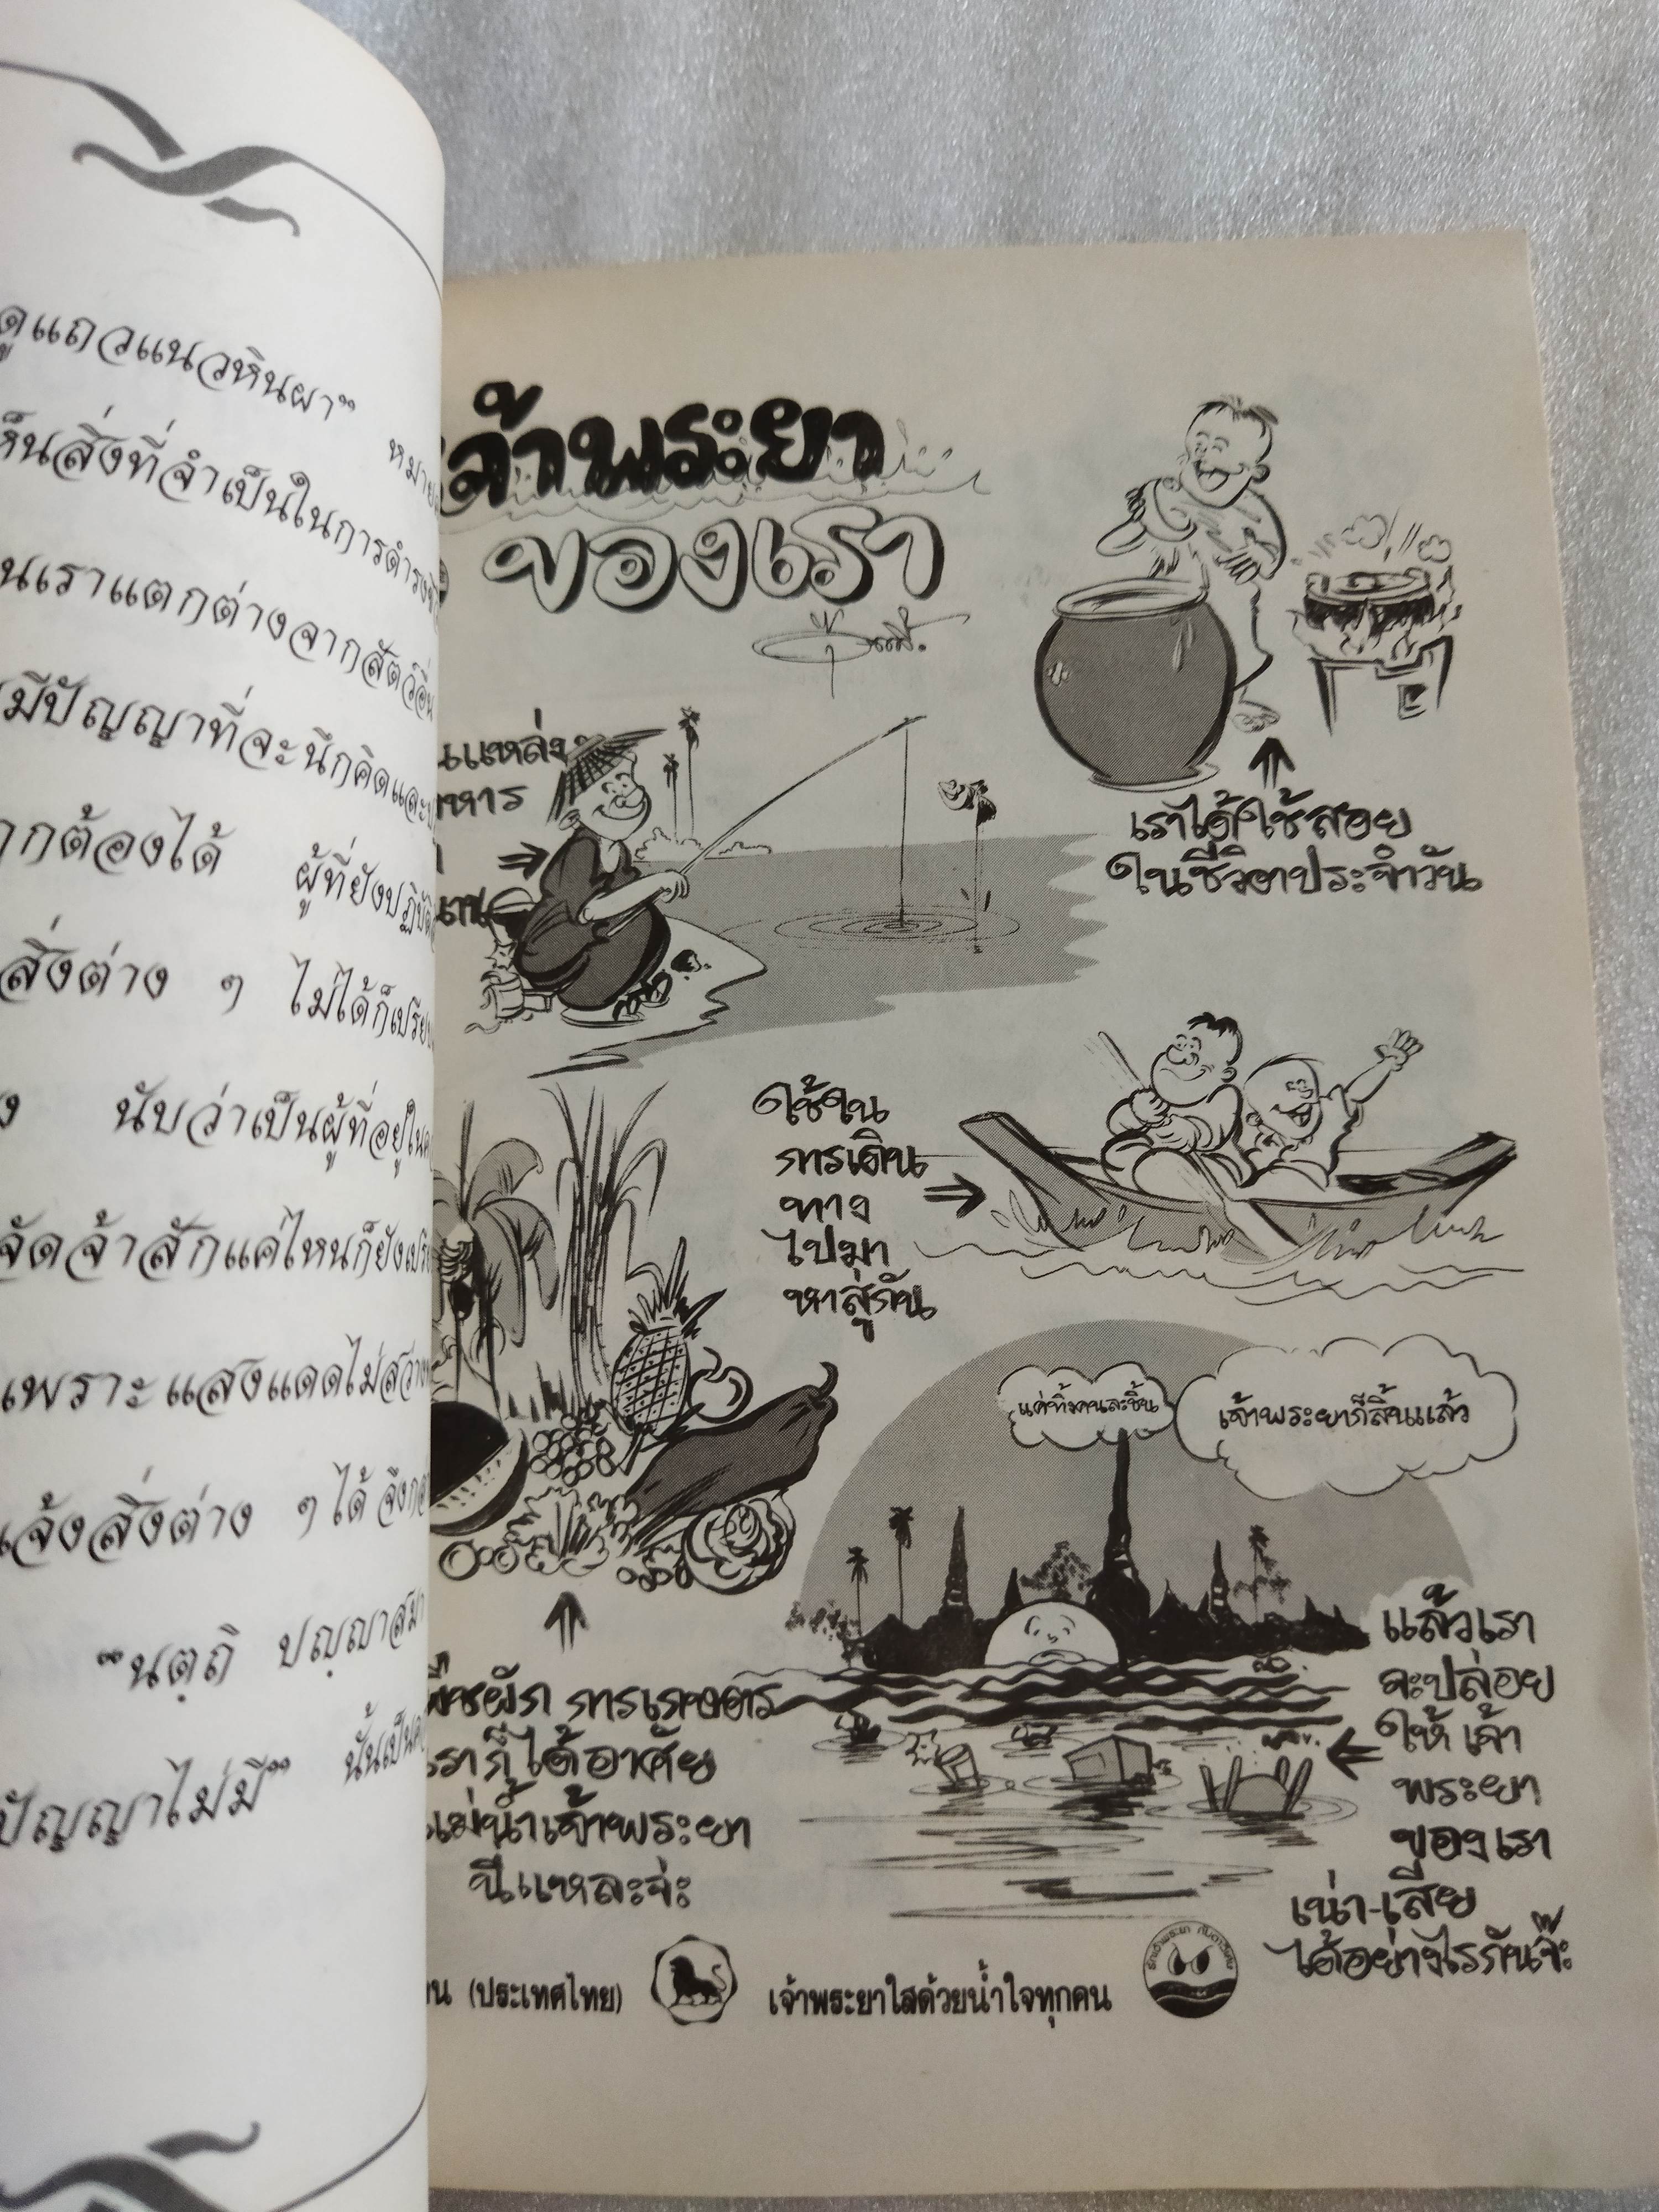 ดูแถวแนวหินผา"
หมาย
เห็นสิ่งที่จำเป็นในการดำรง
นเราแตกต่างจากสัตว์อื่น
มีปัญญาที่จะนึกคิดและ
ากต้องได้ ผู้ที่ยังปฏิบัติ
สิ่งต่าง ๆ ไม่ได้ก็เปรีย
ง นับว่าเป็นผู้ที่อยู่ใน
จัดจ้าสักแค่ไหนก็ยังเปรี
เพราะแสงแดดไม่สว่าง
แจ้งสิ่งต่าง ๆ ได้ จึง
"นตฺถิ ปญฺญาสมา
ปัญญาไม่มี" นั้นเป็น
เจ้าพระยา
ของเรา
เราได้ใช้สอย
ในชีวิตประจำวัน
นแหล่ง
หาร
ใช้ใน
การเดิน
ทาง
ไปมา
หาสู่กัน
แค่ทิ้งคนละชิ้น
เจ้าพระยาก็สิ้นแล้ว
พืชผัก การเกษตร
เราก็ได้อาศัย
แม่น้ำเจ้าพระยา
นี่แหละจ่ะ
แล้วเรา
จะปล่อย
ให้เจ้า
พระยา
ของเรา
เน่า-เสีย
ได้อย่างไรกันจ๊ะ
น (ประเทศไทย)
เจ้าพระยาใสด้วยน้ำใจทุกคน